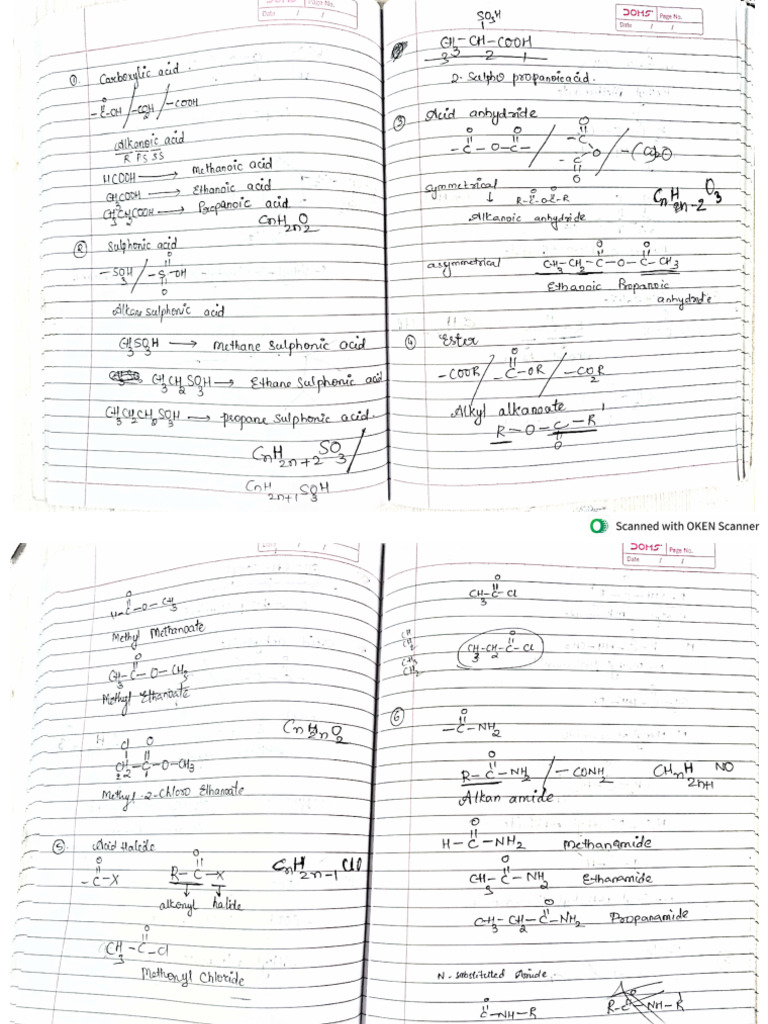 DOMS Page No.
Date / /
① Carboxylic acid.
O
-C-OH / -CO2H / -COOH
Alkanoic acid
R PS SS
HCOOH → Methanoic acid
CH3COOH → Ethanoic acid
CH3CH2COOH → Propanoic acid
CnH2nO2
② Sulphonic acid
O
-SO3H / -S-OH
O
Alkane sulphonic acid
CH3SO3H → methane sulphonic acid
CH3CH2SO3H → Ethane sulphonic acid
CH3CH2CH2SO3H → propane sulphonic acid.
CnH2n+2SO3 /
CnH2n+1SO3H
DOMS Page No.
Date / /
SO3H
CH3-CH-COOH
3 2 1
2-Sulpho propanoic acid.
③ Acid anhydride
O O
-C-O-C- / -C O -C O O / -(CO)2O
symmetrical
↓ R-C-O-C-R
O O
CnH2n-2O3
Alkanoic anhydride
O O
asymmetrical CH3-CH2-C-O-C-CH3
Ethanoic Propanoic
anhydride
④ Ester
O
-COOR / -C-OR / -CO2R
Alkyl alkanoate
R-O-C-R'
O
Scanned with OKEN Scanner
Date / /
O
H-C-O-CH3
Methyl Methanoate
O
CH3-C-O-CH3
Methyl Ethanoate
CnH2nO2
Cl O
CH2-C-O-CH3
2 1
Methyl-2-Chloro Ethanoate
⑤ Acid Halide
O O
-C-X R-C-X CnH2n-1ClO
↓ ↓
alkonyl halide
O
CH3-C-Cl
Methonyl Chloride
DOMS Page No.
Date / /
O
CH3-C-Cl
CH
CH2
CH3
CH2
O
CH3-CH2-C-Cl
⑥
O
-C-NH2
O
R-C-NH2 / -CONH2 CHnH2n+1NO
Alkan amide
O
H-C-NH2 Methanamide
O
CH3-C-NH2 Ethanamide
O
CH3-CH2-C-NH2 Propanamide
N-substituted Amide.
O O
C-NH-R R-C-NH-R'